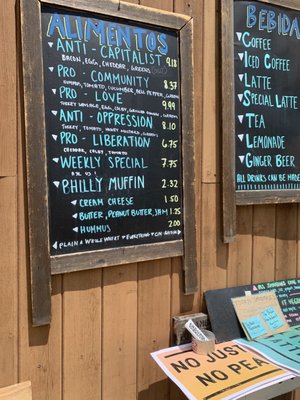 ALIMENTOS
ANTI-CAPITALIST 9.18
BACON, EGG, CHEDDAR, GREENS
PRO-COMMUNITY 8.37
TOMATO, CUCUMBER, BELL PEPPER,
PRO-LOVE 9.99
TURKEY SAUSAGE, EGG, COLBY,
ANTI-OPPRESSION 8.10
TURKEY, TOMATO, HONEY MUSTARD,
PRO-LIBERATION 6.75
CHEDDAR, COLBY, TOMATO
WEEKLY SPECIAL 7.75
ASK US!
PHILLY MUFFIN 2.32
CREAM CHEESE 1.50
BUTTER, PEANUT BUTTER, JAM 1.25
HUMMUS 2.00
PLAIN WHOLE WHEAT EVERYTHING
BEBIDA
COFFEE
ICED COFFEE
LATTE
SPECIAL LATTE
TEA
LEMONADE
GINGER BEER
ALL DRINKS CAN BE MADE
NO JUS
NO PEA